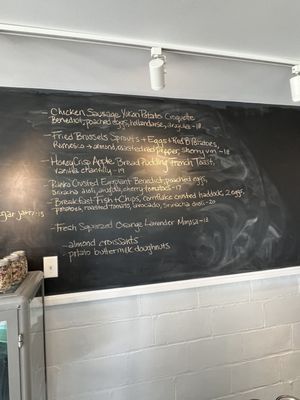 - Chicken Sausage Yukon Potato Croquette
Benedict, poached eggs, hollandaise, arugula - 18
- Fried Brussels Sprouts + Eggs + Red B Potatoes,
Romesco + almond, roasted red pepper, sherry vin - 18
- HoneyCrisp Apple Bread Pudding French Toast,
vanilla chantilly - 19
- Panko Crusted Eggplant Benedict, poached eggs,
sriracha aioli, arugula, cherry tomatoes - 17
- Breakfast Fish + Chips, cornflake crusted haddock, 2 eggs,
potatoes, roasted tomato, avocado, sriracha aioli - 20
- Fresh Squeezed Orange Lavender Mimosa - 13
- almond croissants
potato buttermilk doughnuts